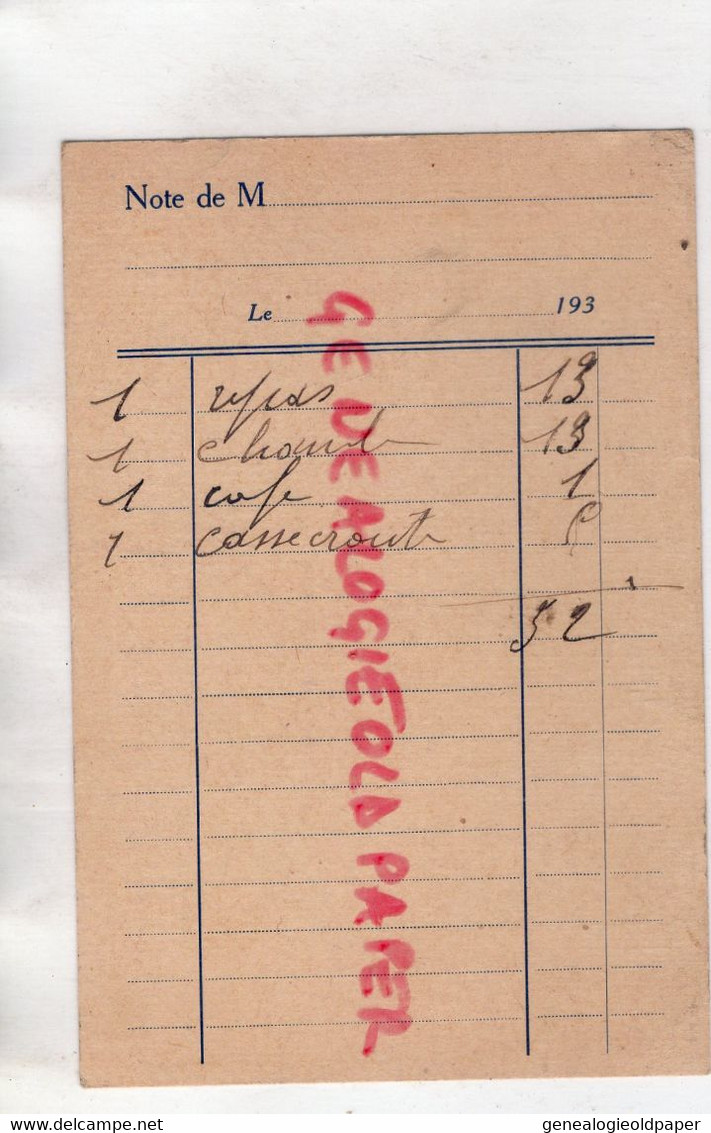 Note de M
Le 193
1 repas 13
1 chamb 13
1 cafe 1
1 cassecroute
32
GENEALOGIEOLDPAPER
delcampe.net
genealogieoldpaper